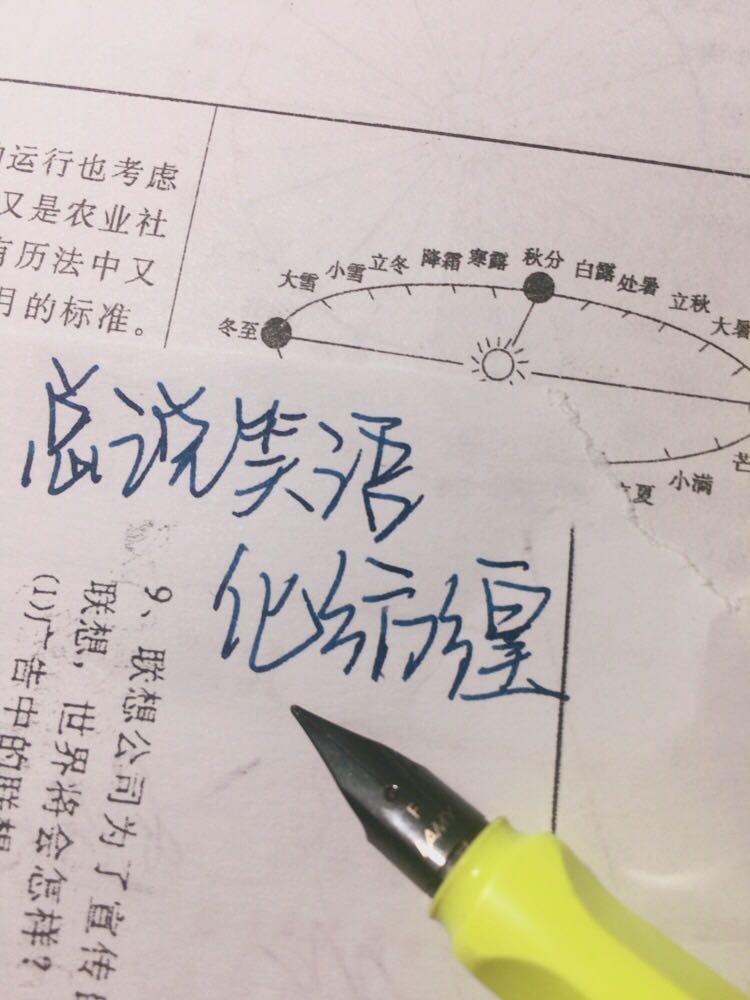 运行也考虑
又是农业社
历法中又
月的标准。
冬至
大雪
小雪
立冬
降霜
寒露
秋分
白露
处暑
立秋
大暑
芒
小满
夏
总说笑语
化纺缠
9、联想公司为了宣传
联想，世界将会怎样？
(1)广告中的联想
LAMY
F